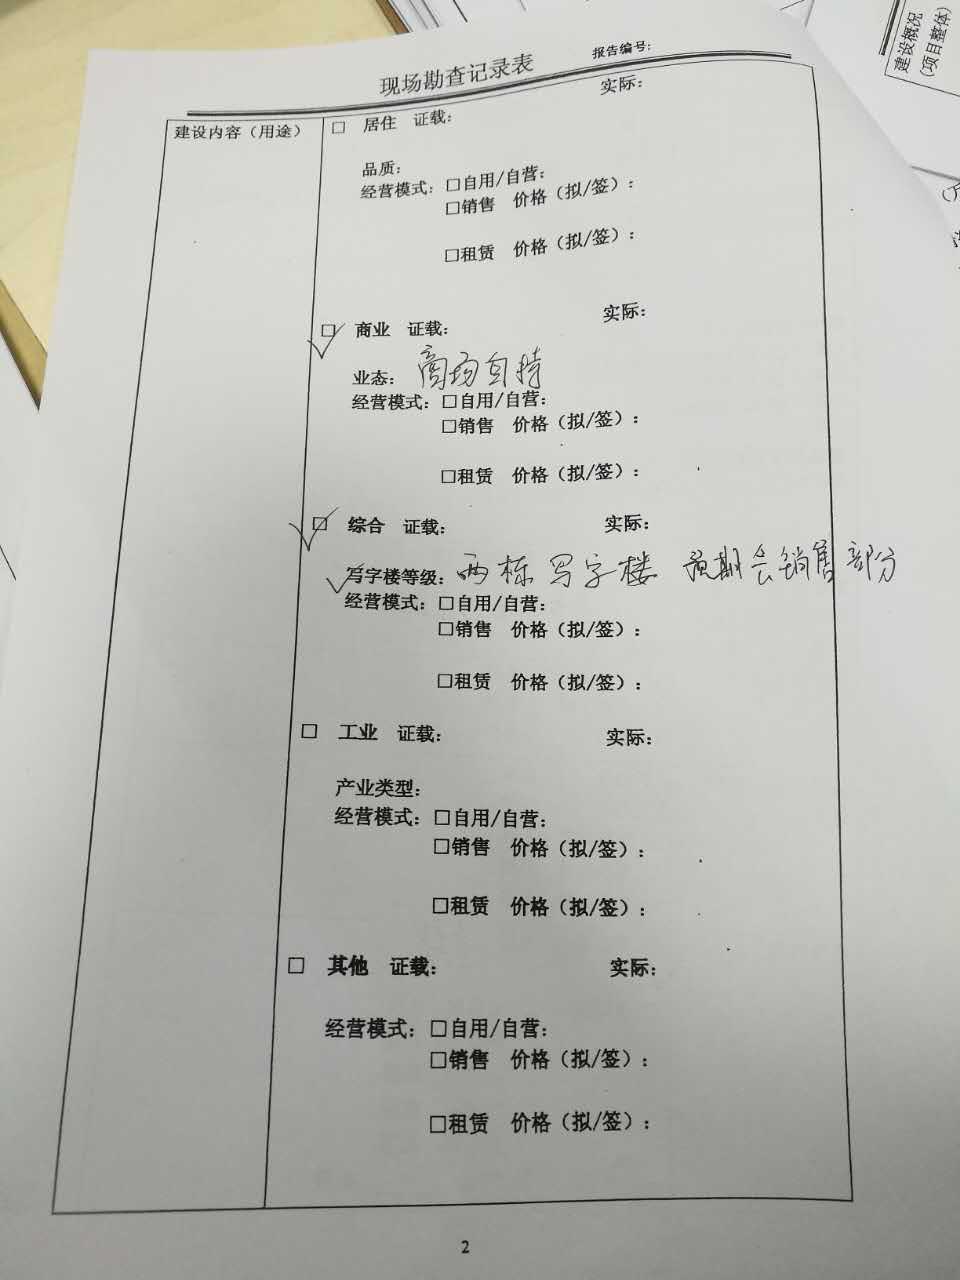 现场勘查记录表 报告编号:
建设内容（用途） □ 居住 证载: 实际:
品质:
经营模式: □自用/自营:
□销售 价格（拟/签）:
□租赁 价格（拟/签）:
□ 商业 证载: 实际:
业态: 商场自持
经营模式: □自用/自营:
□销售 价格（拟/签）:
□租赁 价格（拟/签）:
□ 综合 证载: 实际:
写字楼等级: 两栋写字楼 预期会销售部分
经营模式: □自用/自营:
□销售 价格（拟/签）:
□租赁 价格（拟/签）:
□ 工业 证载: 实际:
产业类型:
经营模式: □自用/自营:
□销售 价格（拟/签）:
□租赁 价格（拟/签）:
□ 其他 证载: 实际:
经营模式: □自用/自营:
□销售 价格（拟/签）:
□租赁 价格（拟/签）:
2
建设概况
(项目整体)